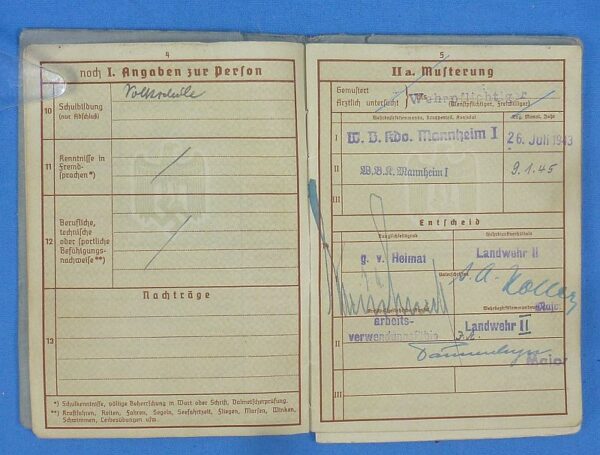 4
noch I. Angaben zur Person
10 Schulbildung (nur Abschluß) Volksschule
11 Kenntnisse in Fremdsprachen *)
12 Berufliche, technische oder sportliche Befähigungsnachweise **)
Nachträge
13
*) Schulkenntnisse, völlige Beherrschung in Wort oder Schrift, Dolmetscherprüfung.
**) Kraftfahren, Reiten, Fahren, Segeln, Seefahrtzeit, Fliegen, Morsen, Winken, Schwimmen, Leibesübungen usw.
5
II a. Musterung
Gemustert
Ärztlich untersucht als Wehrpflichtiger
(Dienstpflichtiger, Freiwilliger)
Tag, Monat, Jahr
I W. B. Kdo. Mannheim I 26. Juli 1943
II W.B.K. Mannheim I 9.1.45
III
Entscheid
Tauglichkeitsgrad Wehrdienstverhältnis
g. v. Heimat Landwehr II
Unterschriften
I
arbeits-
verwendungsfähig
Landwehr II
II
Major
III